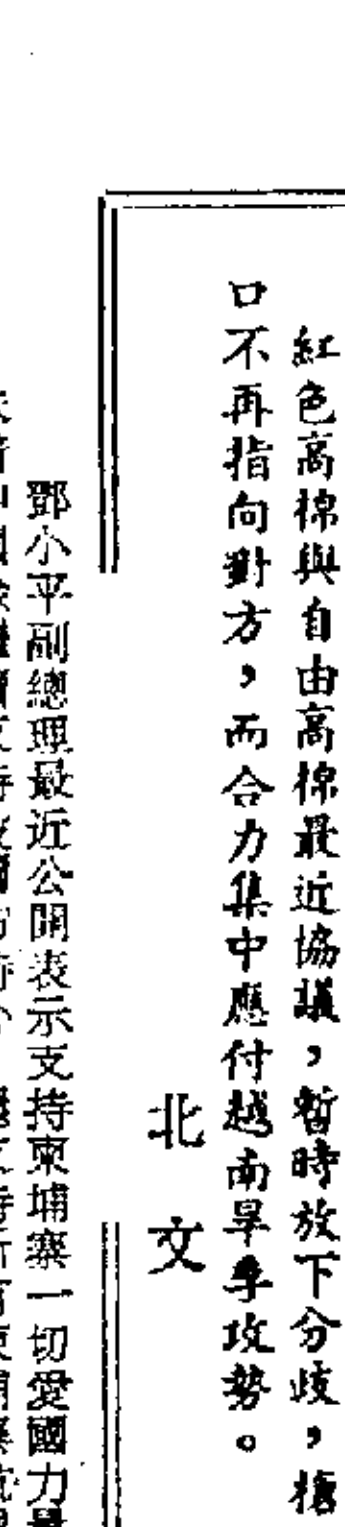 紅色高棉與自由高棉最近協議，暫時放下分歧，槍
口不再指向對方，而合力集中應付越南旱季攻勢。
北文
鄧小平副總理最近公開表示支持柬埔寨一切愛國力量